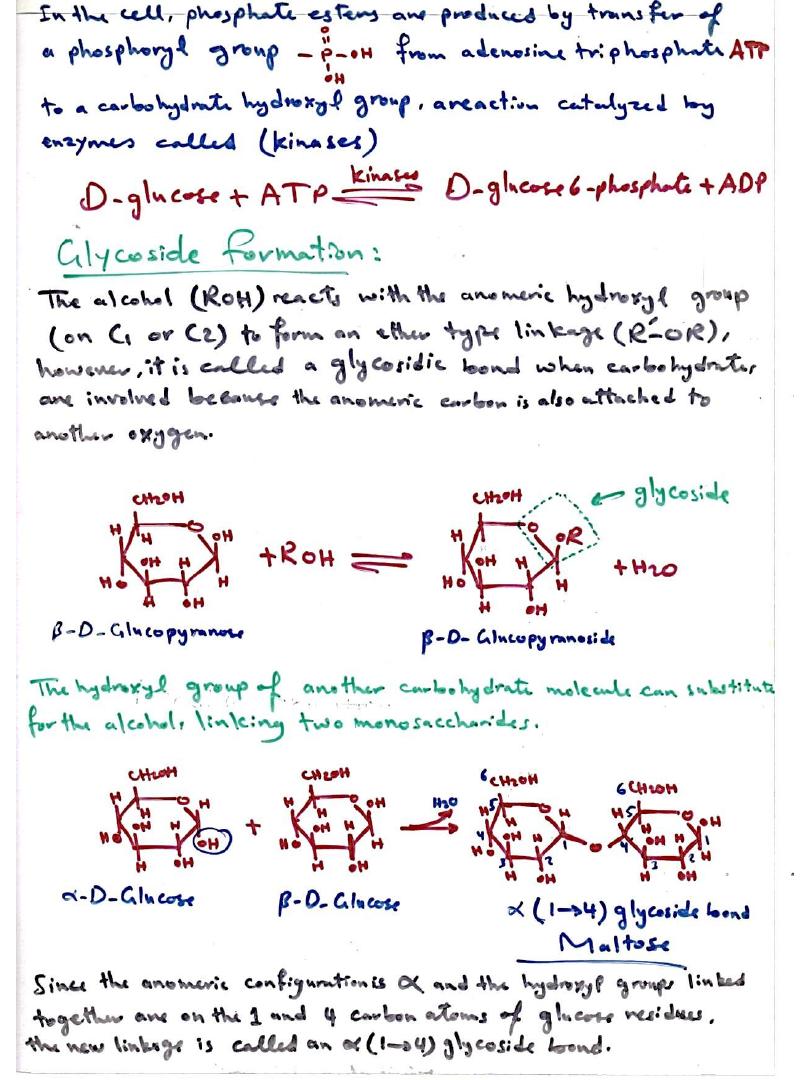 In the cell, phosphate esters are produced by transfer of
a phosphoryl group -P-OH from adenosine triphosphate ATP
O
OH
to a carbohydrate hydroxyl group, a reaction catalyzed by
enzymes called (kinases)
D-glucose + ATP ⇌ D-glucose 6-phosphate + ADP
kinases
Glycoside formation:
The alcohol (ROH) reacts with the anomeric hydroxyl group
(on C1 or C2) to form an ether type linkage (R'-OR),
however, it is called a glycosidic bond when carbohydrates
are involved because the anomeric carbon is also attached to
another oxygen.
CH2OH CH2OH ← glycoside
H O OH H O OR
H H
+ROH ⇌ +H2O
OH H OH H
HO H HO H
H OH H OH
β-D-Glucopyranose β-D-Glucopyranoside
The hydroxyl group of another carbohydrate molecule can substitute
for the alcohol, linking two monosaccharides.
CH2OH CH2OH 6CH2OH 6CH2OH
H O H H O OH H2O H 5 O H H 5 O OH
H + H → 4 1 O 4 1
HO OH H OH HO OH H H HO OH H OH H H
H OH H OH H 3 2 OH H 3 2 OH
α-D-Glucose β-D-Glucose α(1→4) glycoside bond
Maltose
Since the anomeric configuration is α and the hydroxyl groups linked
together are on the 1 and 4 carbon atoms of glucose residues,
the new linkage is called an α(1→4) glycoside bond.